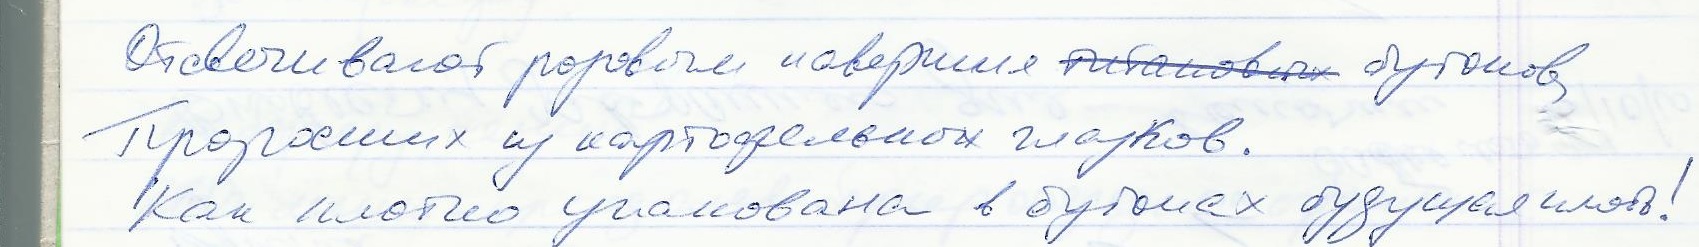 Отсвечивают розовым навершия титановых бутонов,
Проросших из картофельных глазков.
Как плотно упакована в бутонах будущая плоть!